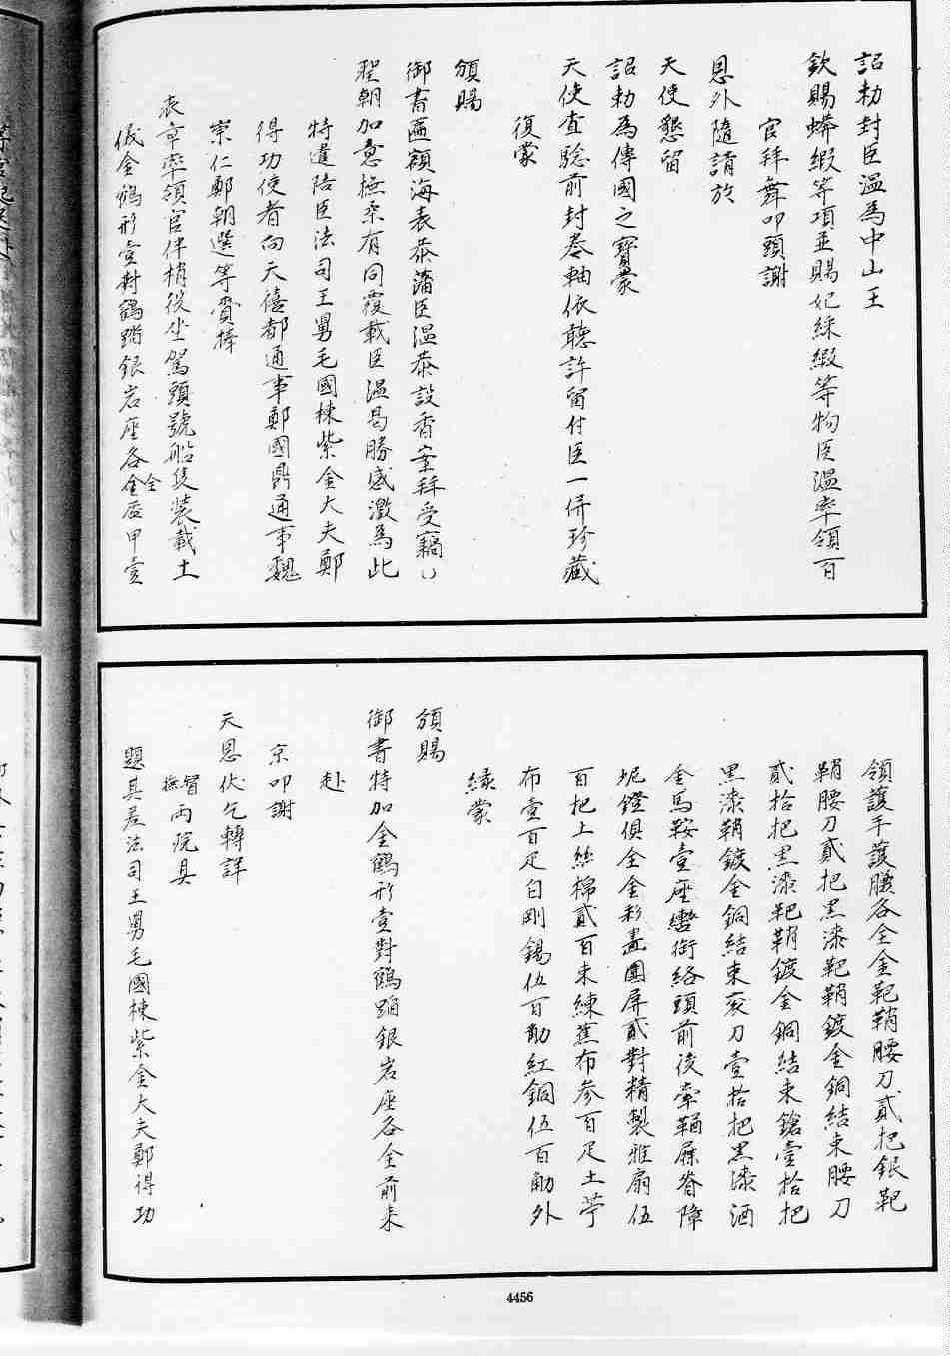 詔勅封臣溫為中山王
欽賜蟒緞等項並賜妃綵緞等物臣溫率領百
官拜舞叩頭謝
恩外隨請於
天使懇留
詔勅為傳國之寶蒙
天使查驗前封卷軸依聽許留付臣一併珍藏
復蒙
頒賜
御書匾額海表恭藩臣溫恭設香案拜受竊以
聖朝加意撫柔有同覆載臣溫曷勝感激為此
特遣陪臣法司王舅毛國棟紫金大夫鄭
得功使者向天禧都通事鄭國鼎通事魏
崇仁鄭朝選等賫捧
表章率領官伴梢役坐駕頭號船隻裝載土
儀金鶴形壹對鶴踏銀岩座各全金盔甲壹
領護手護腰各全金靶鞘腰刀貳把銀靶
鞘腰刀貳把黑漆靶鞘鍍金銅結束腰刀
貳拾把黑漆靶鞘鍍金銅結束鎗壹拾把
黑漆鞘鍍金銅結束袞刀壹拾把黑漆洒
金馬鞍壹座轡銜絡頭前後牽鞦屜脊障
坭鐙俱全金彩畫圍屏貳對精製雅扇伍
百把上絲棉貳百束練蕉布參百疋土苧
布壹百疋白剛錫伍百觔紅銅伍百觔外
緣蒙
頒賜
御書特加金鶴形壹對鶴踊銀岩座各全前來
赴
京叩謝
天恩伏乞轉詳
督撫兩院具
題其差法司王舅毛國棟紫金大夫鄭得功
4456